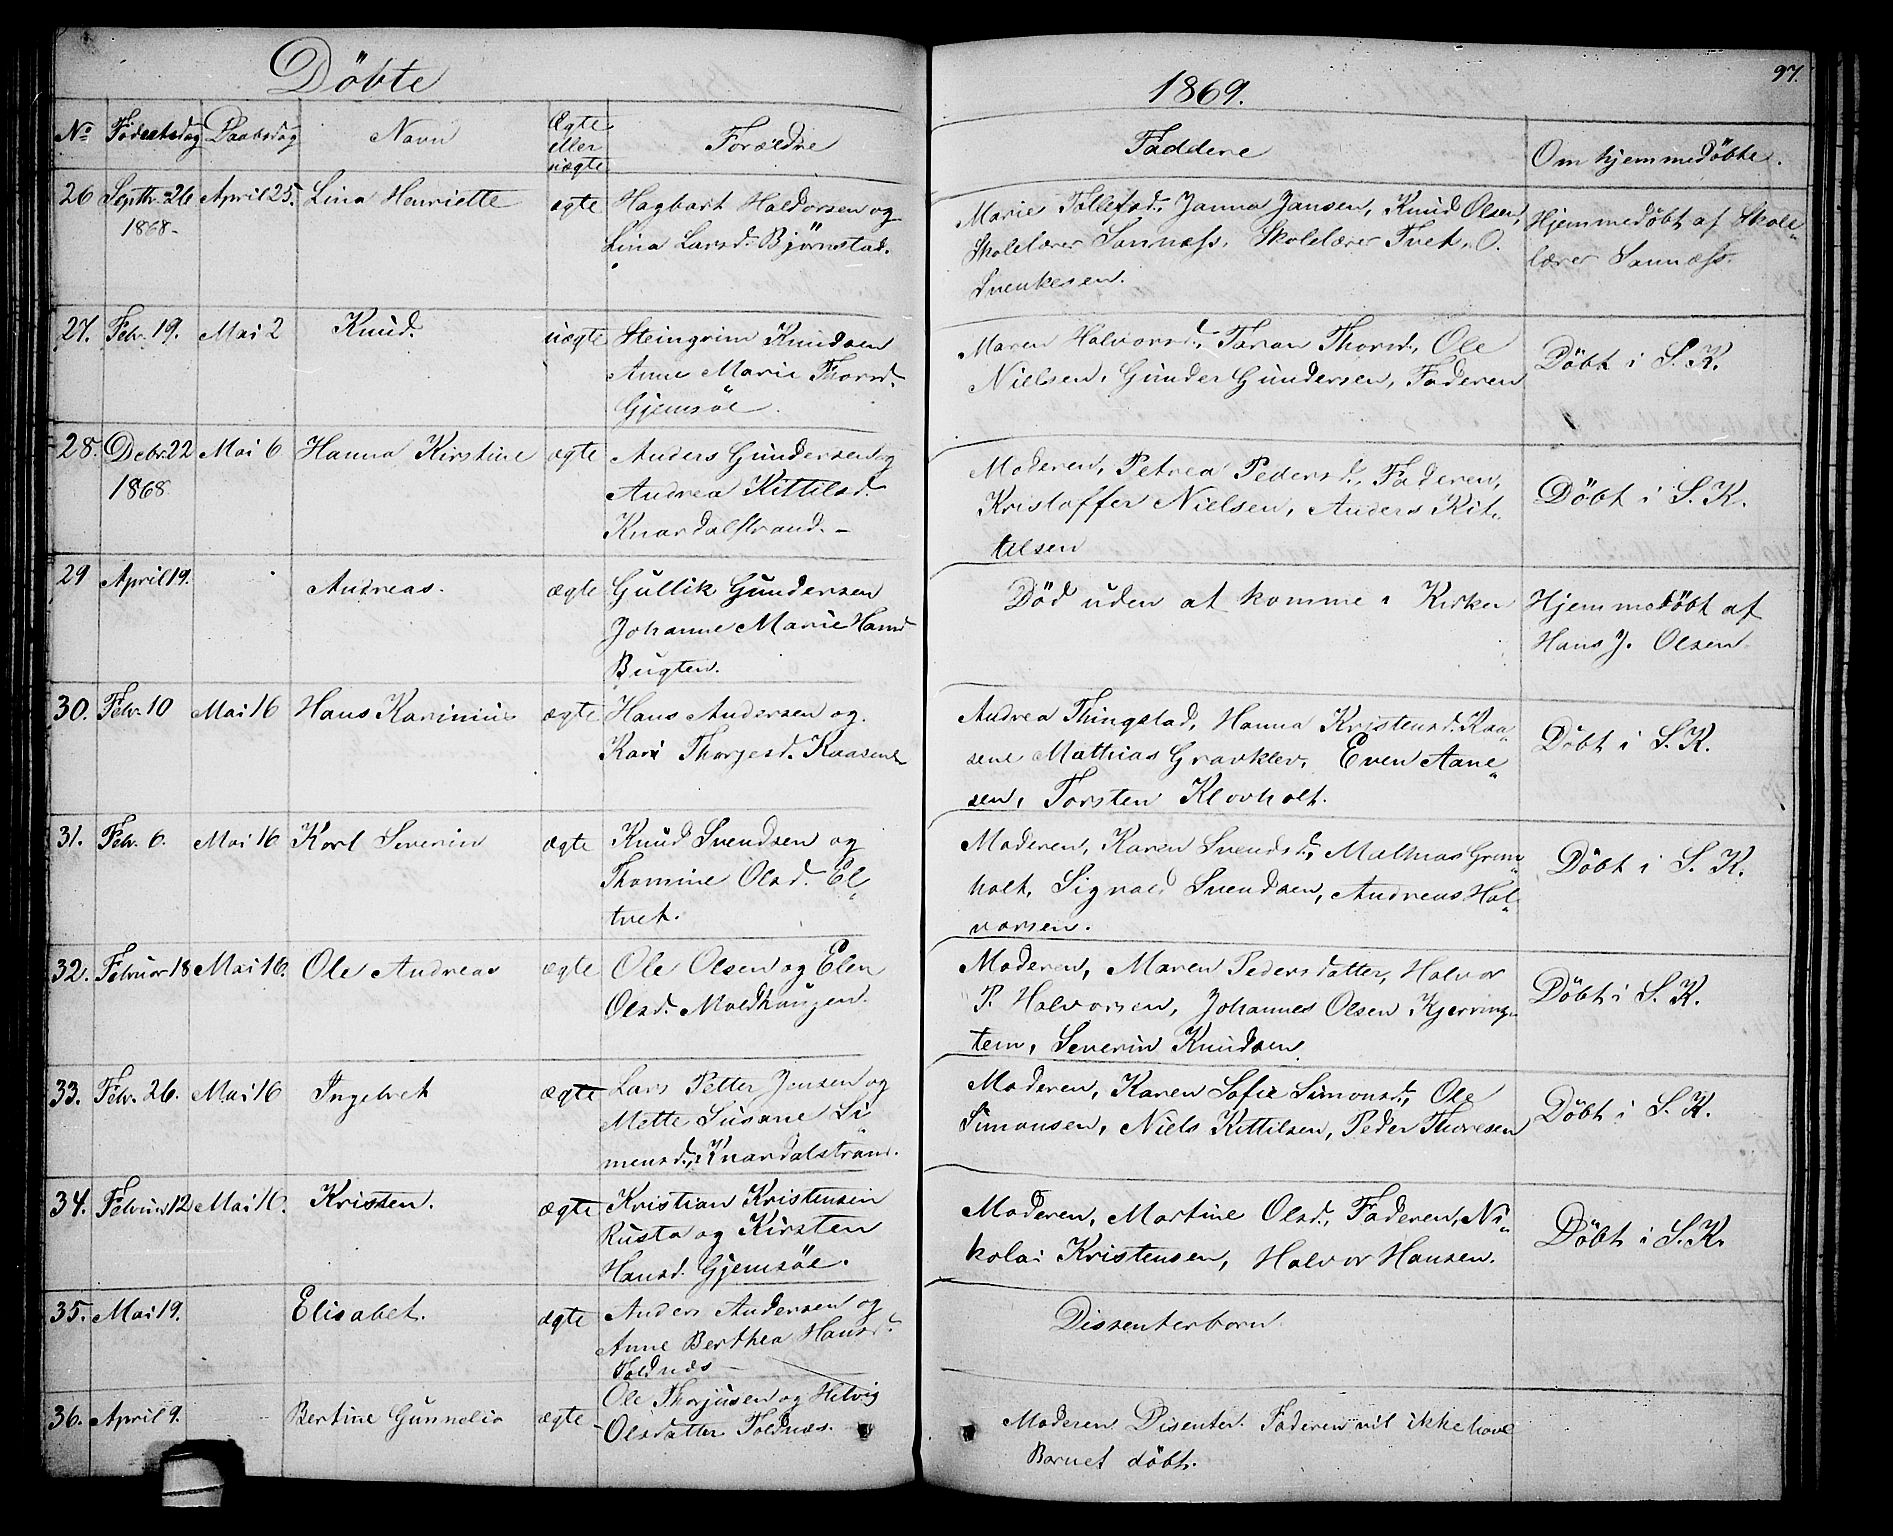 Döbte
1869.
97.
No Fødselsdag Daabsdag Navn Ægte eller uægte Forældre Faddere Om hjemmedöbte.
26 Septbr. 26 April 25. Lina Henriette ægte Hagbart Haldorsen og
1868. Lina Larsd. Björnstad.
Marie Tollefsd., Janna Jansen, Knud Olsen,
Skolelærer Sannæss, Skolelærer Tvet, O.
Svenkesen.
Hjemmedöbt af Skole-
lærer Sannæss.
27. Febr. 19. Mai 2 Knud. uægte Steingrim Knudsen
Anne Marie Thorsd.
Gjemsöe.
Maren Halvorsd., Taran Thorsd., Ole
Nielsen, Gunder Gundersen, Faderen
Döbt i S. K.
28. Debr. 22 Mai 6 Hanna Kirstine ægte Anders Gundersen og
1868 Andrea Kittilsd.
Knardalstrand. –
Moderen, Petrea Pedersd., Faderen,
Kristoffer Nielsen, Anders Kit-
tilsen
Döbt i S. K.
29 April 19. Andreas. ægte Gullik Gundersen
Johanne Marie Hansd
Bugten.
Död uden at komme i Kirken
Hjemmedöbt af
Hans J. Olsen.
30. Febr. 10 Mai 16 Hans Karinius ægte Hans Andersen og
Kari Thorjesd. Kaasene
Andrea Thingstad, Hanna Kristensd. Kaa-
sene Mathias Gravklev, Even Aane-
sen, Torsten Klovholt.
Döbt i S. K.
31. Febr. 6. Mai 16 Karl Severin ægte Knud Svendsen og
Thomine Olsd. El-
tvet.
Moderen, Karen Svendsd., Mathias Grin-
holt, Signald Svendsen, Andreas Hal-
vorsen.
Döbt i S. K.
32. Februar 18 Mai 16. Ole Andreas ægte Ole Olsen og Elen
Olsd. Moldhaugen.
Moderen, Maren Pedersdatter, Halvor
P. Halvorsen, Johannes Olsen Kjerring-
tein, Severin Knudsen.
Döbt i S. K.
33. Febr. 26. Mai 16 Ingebret ægte Lars Petter Jensen og
Mette Susane Si-
mensd., Knardalstrand.
Moderen, Karen Sofie Simonsd., Ole
Simonsen, Niels Kittilsen, Peder Thoresen
Döbt i S. K.
34. Februar 12 Mai 16. Kristen. ægte Kristian Kristensen
Rusta og Kirsten
Hansd. Gjemsöe.
Moderen, Martine Olsd., Faderen, Ni-
kolai Kristensen, Halvor Hansen.
Döbt i S. K.
35. Mai 19. Elisabet. ægte Anders Andersen og
Anne Berthea Hansd.
Foldnæs –
Dissenterborn
36. April 9. Bertine Gunnelia ægte Ole Thorjusen og Helvig
Olsdatter Foldnæs.
Moderen Disenter. Faderen vil ikke have
Barnet döbt.